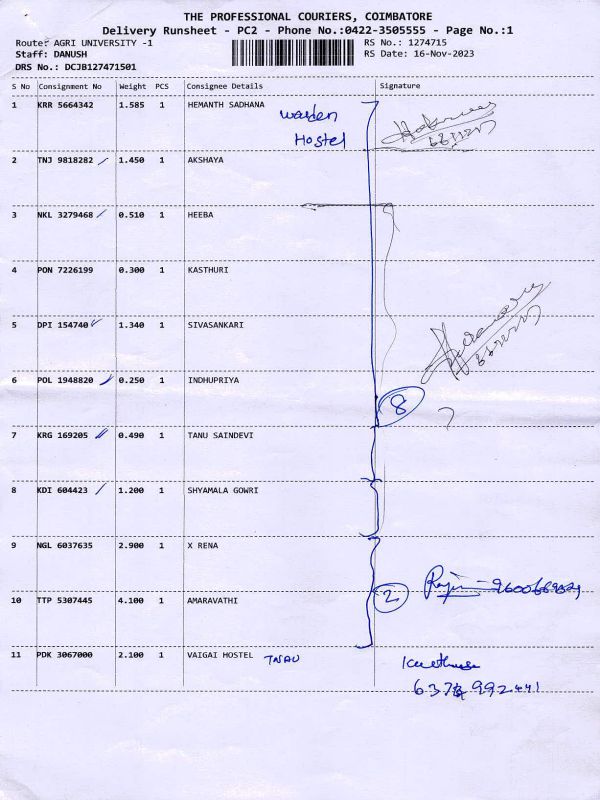 THE PROFESSIONAL COURIERS, COIMBATORE
Delivery Runsheet - PC2 - Phone No.:0422-3505555 - Page No.:1
Route: AGRI UNIVERSITY -1
RS No.: 1274715
Staff: DANUSH
RS Date: 16-Nov-2023
DRS No.: DCJB127471501
S No Consignment No Weight PCS Consignee Details Signature
1 KRR 5664342 1.585 1 HEMANTH SADHANA
Warden
Hostel
2 TNJ 9818282 1.450 1 AKSHAYA
3 NKL 3279468 0.510 1 HEEBA
4 PON 7226199 0.300 1 KASTHURI
5 DPI 154740 1.340 1 SIVASANKARI
6 POL 1948820 0.250 1 INDHUPRIYA
8
7 KRG 169205 0.490 1 TANU SAINDEVI
8 KDI 604423 1.200 1 SHYAMALA GOWRI
9 NGL 6037635 2.900 1 X RENA
2
10 TTP 5307445 4.100 1 AMARAVATHI
11 PDK 3067000 2.100 1 VAIGAI HOSTEL TNAU